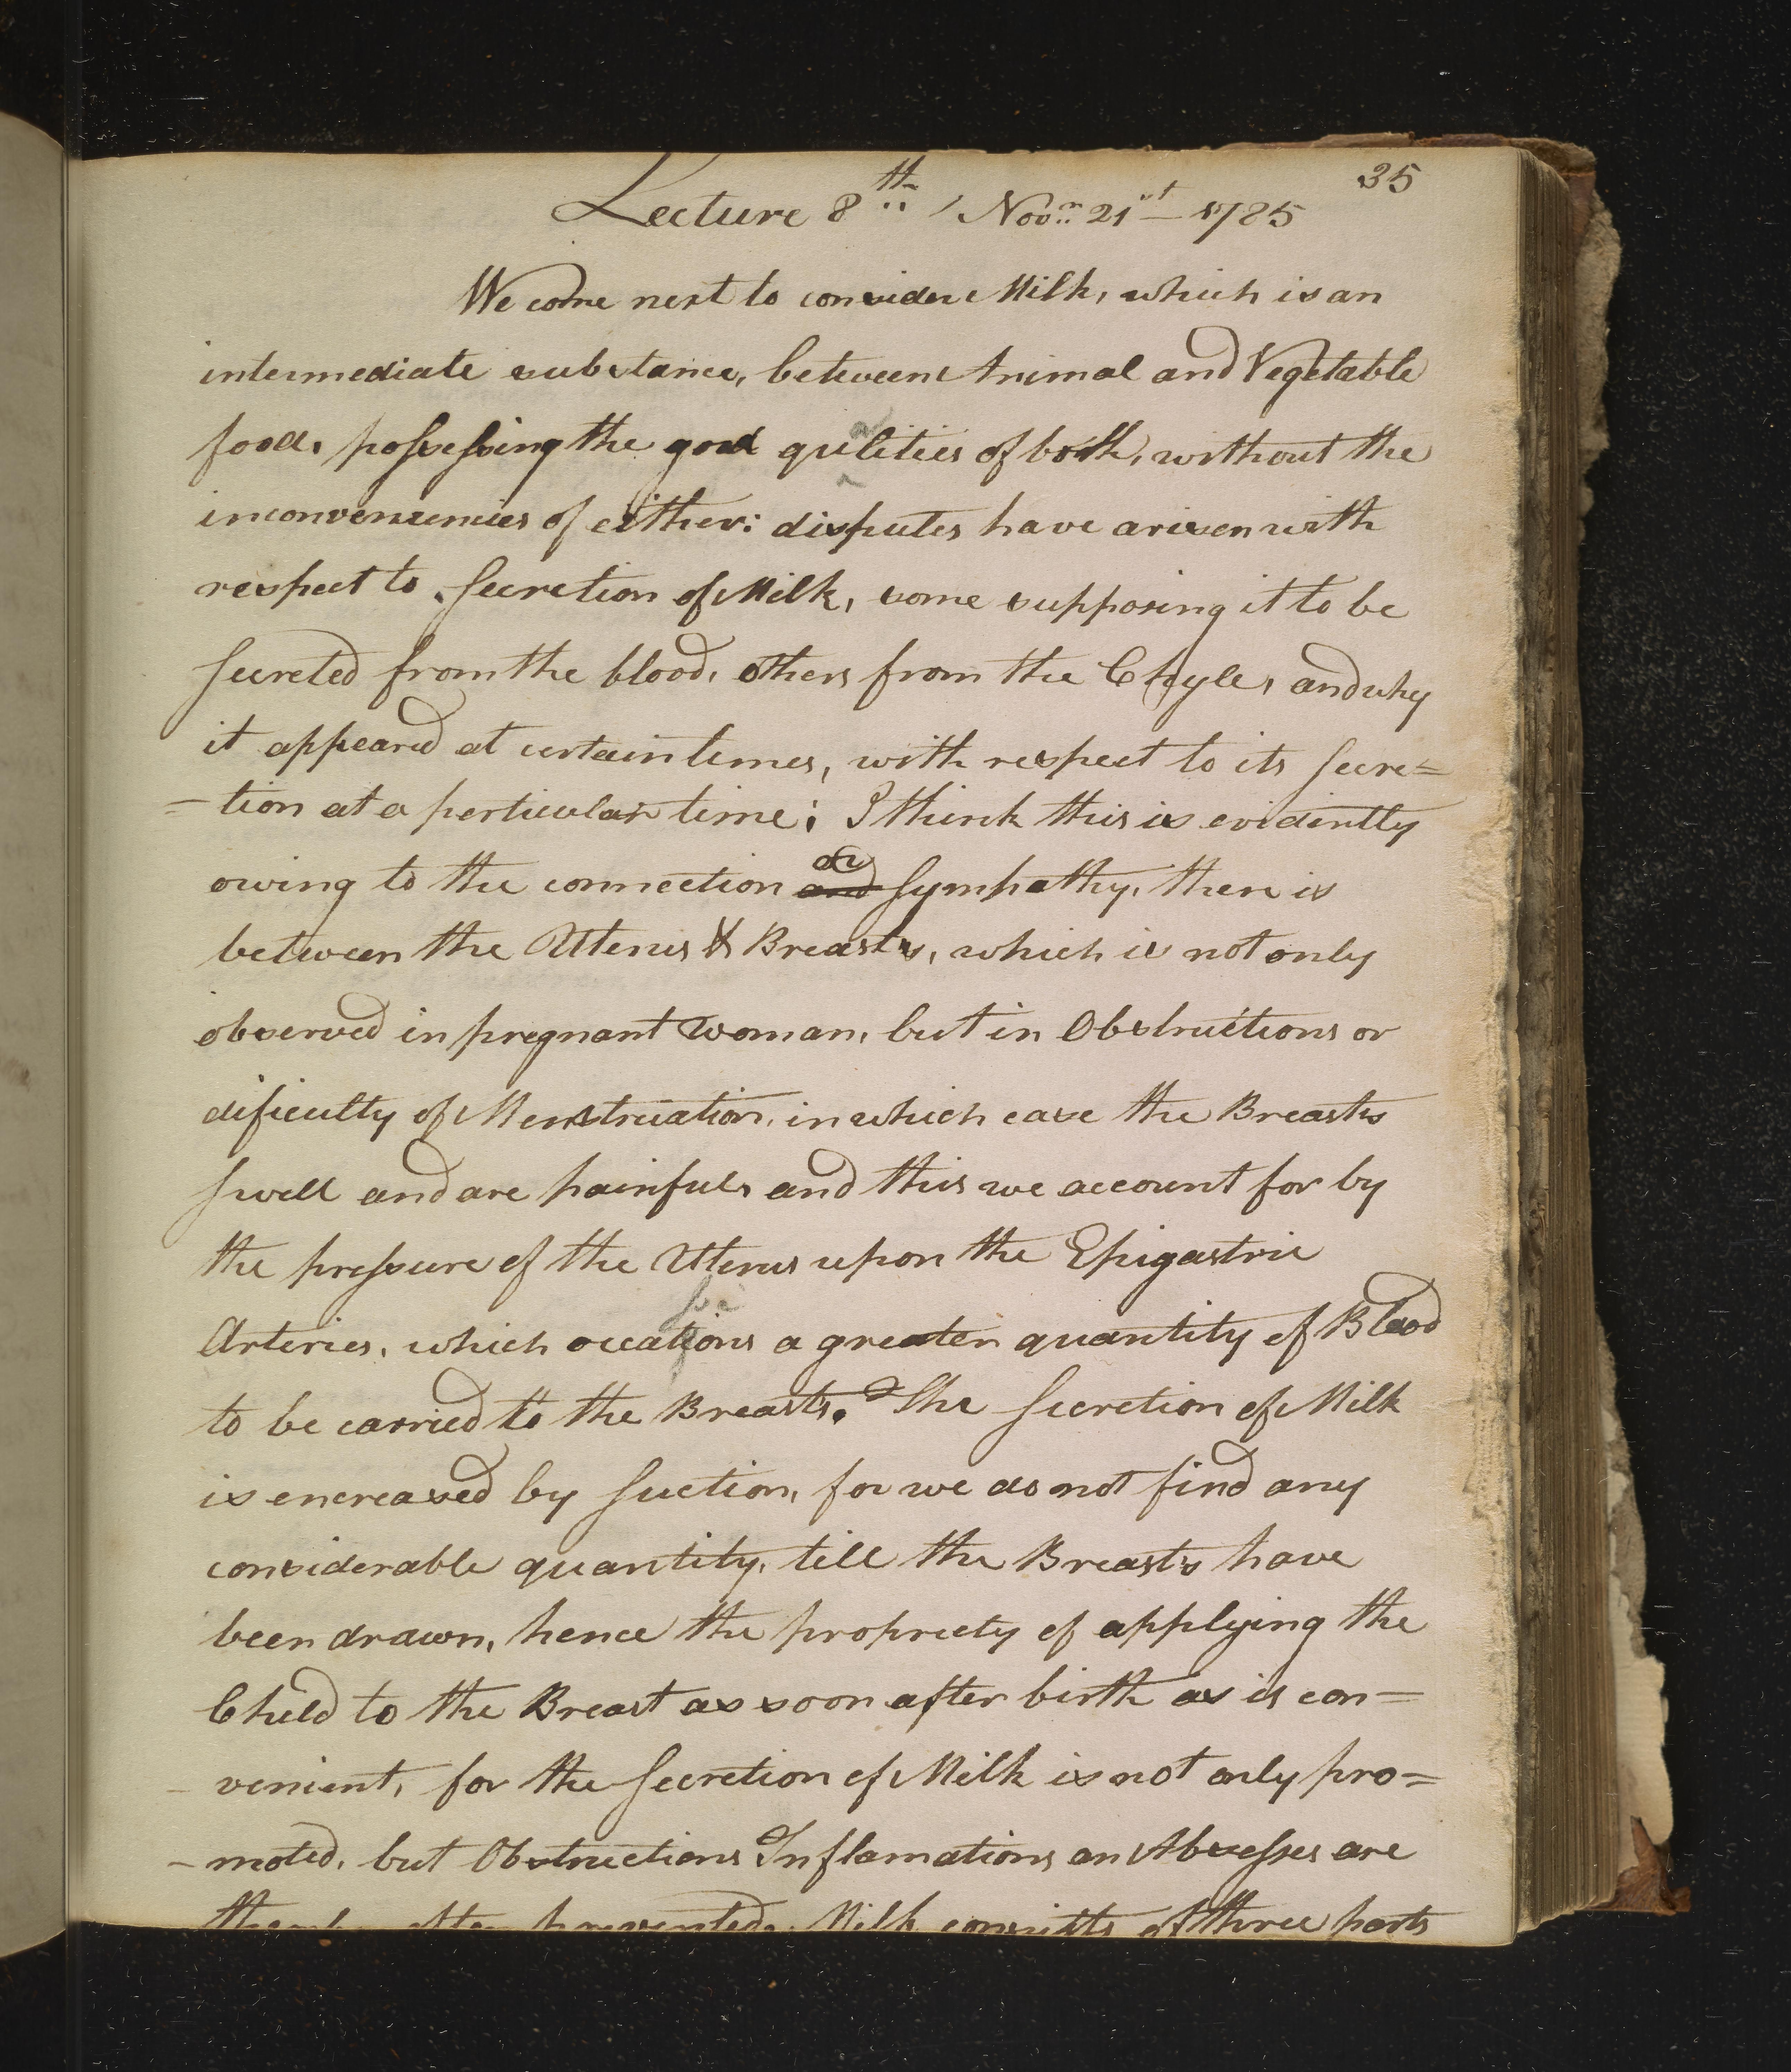 35
Lecture 8th / Novr 21st — 1785
We come next to consider Milk, which is an
intermediate substance, between Animal and Vegetable
food, possessing the good qulities of both, without the
inconveniencies of either: disputes have arisen with
respect to Secretion of Milk, some supposing it to be
secreted from the blood, others from the Chyle, and why
it appeared at certain times, with respect to its secre=
=tion at a perticular time; I think this is evidently
or
owing to the connection and Sympathy, there is
between the Uterus & Breasts, which is not only
observed in pregnant woman, but in Obstructions or
dificulty of Menstruation, in which case the Breasts
swell and are painful, and this we account for by
the pressure of the Uterus upon the Epigastric
Arteries, which occations a greater quantity of Blood
to be carried to the Breasts. The Secretion of Milk
is encreased by Suction, for we do not find any
considerable quantity, till the Breasts have
been drawn, hence the propriety of applying the
Child to the Breast as soon after birth as is con=
venient, for the Secretion of Milk is not only pro=
-moted, but Obstructions Inflamations an Abscesses are
often prevented. Milk consists of three parts